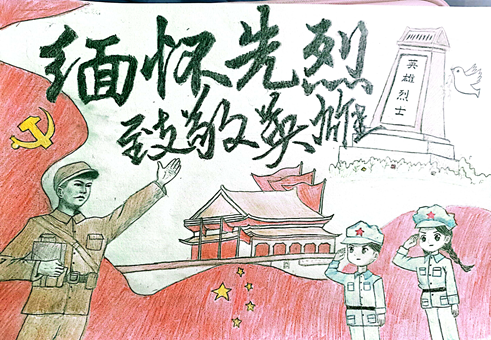 缅怀先烈
致敬英雄
英雄烈士